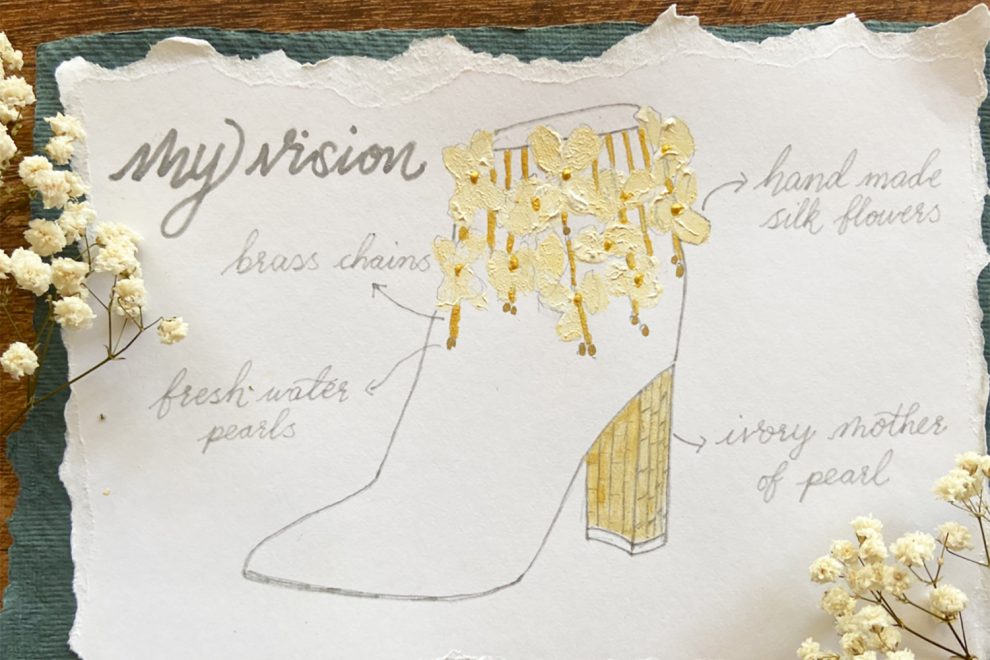 my vision
brass chains
hand made
silk flowers
fresh water
pearls
ivory mother
of pearl